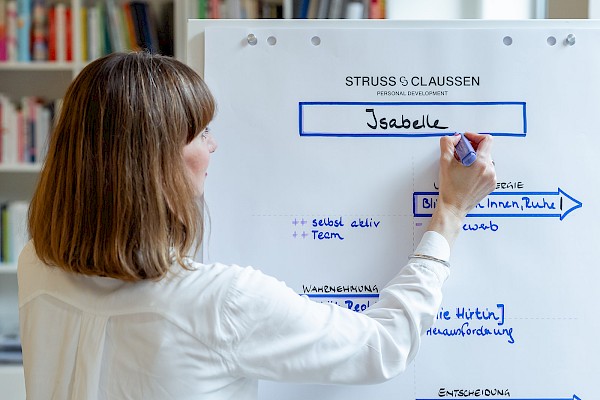 STRUSS & CLAUSSEN
PERSONAL DEVELOPMENT
Isabelle
Innen, Ruhe!
++ selbst aktiv
++ Team
WAHRNEHMUNG
Hirtin]
Herausforderung
ENTSCHEIDUNG